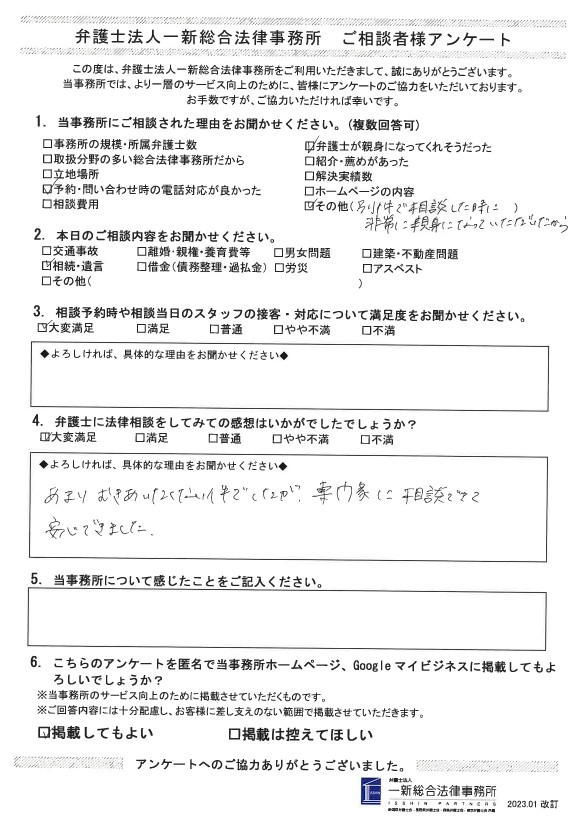 弁護士法人一新総合法律事務所　ご相談者様アンケート
この度は、弁護士法人一新総合法律事務所をご利用いただきまして、誠にありがとうございます。
当事務所では、より一層のサービス向上のために、皆様にアンケートのご協力をいただいております。
お手数ですが、ご協力いただければ幸いです。
1．当事務所にご相談された理由をお聞かせください。（複数回答可）
□事務所の規模・所属弁護士数　☑弁護士が親身になってくれそうだった
□取扱分野の多い総合法律事務所だから　□紹介・薦めがあった
□立地場所　□解決実績数
☑予約・問い合わせ時の電話対応が良かった　□ホームページの内容
□相談費用　☑その他（別件で相談した時に　）
非常に親身になっていただいたから
2．本日のご相談内容をお聞かせください。
□交通事故　□離婚・親権・養育費等　□男女問題　□建築・不動産問題
☑相続・遺言　□借金（債務整理・過払金）　□労災　□アスベスト
□その他（　）
3．相談予約時や相談当日のスタッフの接客・対応について満足度をお聞かせください。
☑大変満足　□満足　□普通　□やや不満　□不満
◆よろしければ、具体的な理由をお聞かせください◆
4．弁護士に法律相談をしてみての感想はいかがでしたでしょうか？
☑大変満足　□満足　□普通　□やや不満　□不満
◆よろしければ、具体的な理由をお聞かせください◆
あまり むきあいたくない件でしたが、専門家に相談できて
安心できました。
5．当事務所について感じたことをご記入ください。
6．こちらのアンケートを匿名で当事務所ホームページ、Google マイビジネスに掲載してもよ
ろしいでしょうか？
※当事務所のサービス向上のために掲載させていただくものです。
※ご回答内容には十分配慮し、お客様に差し支えのない範囲で掲載させていただきます。
☑掲載してもよい　□掲載は控えてほしい
アンケートへのご協力ありがとうございました。
弁護士法人
一新総合法律事務所
ISSHIN PARTNERS
2023.01 改訂